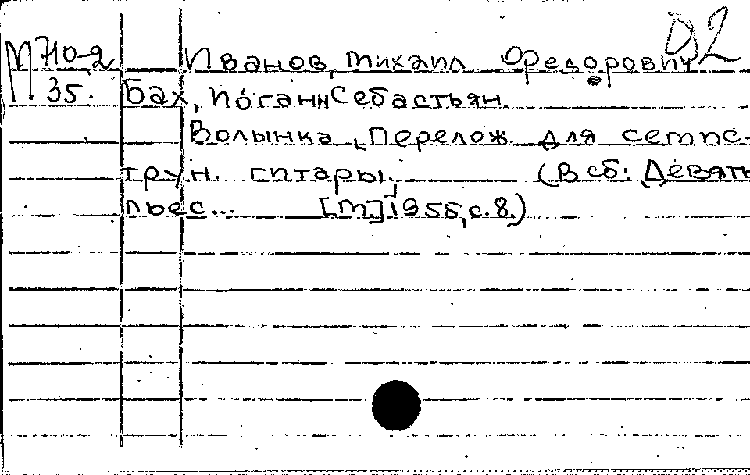 М 710-2 Иванов, Михаил Федорович
35. Бах, Иоганн Себастьян.
Волынка [, Перелож для семис-
трун. гитары.] (В сб: Девять
пьес... [М.] 1955, с. 8.)